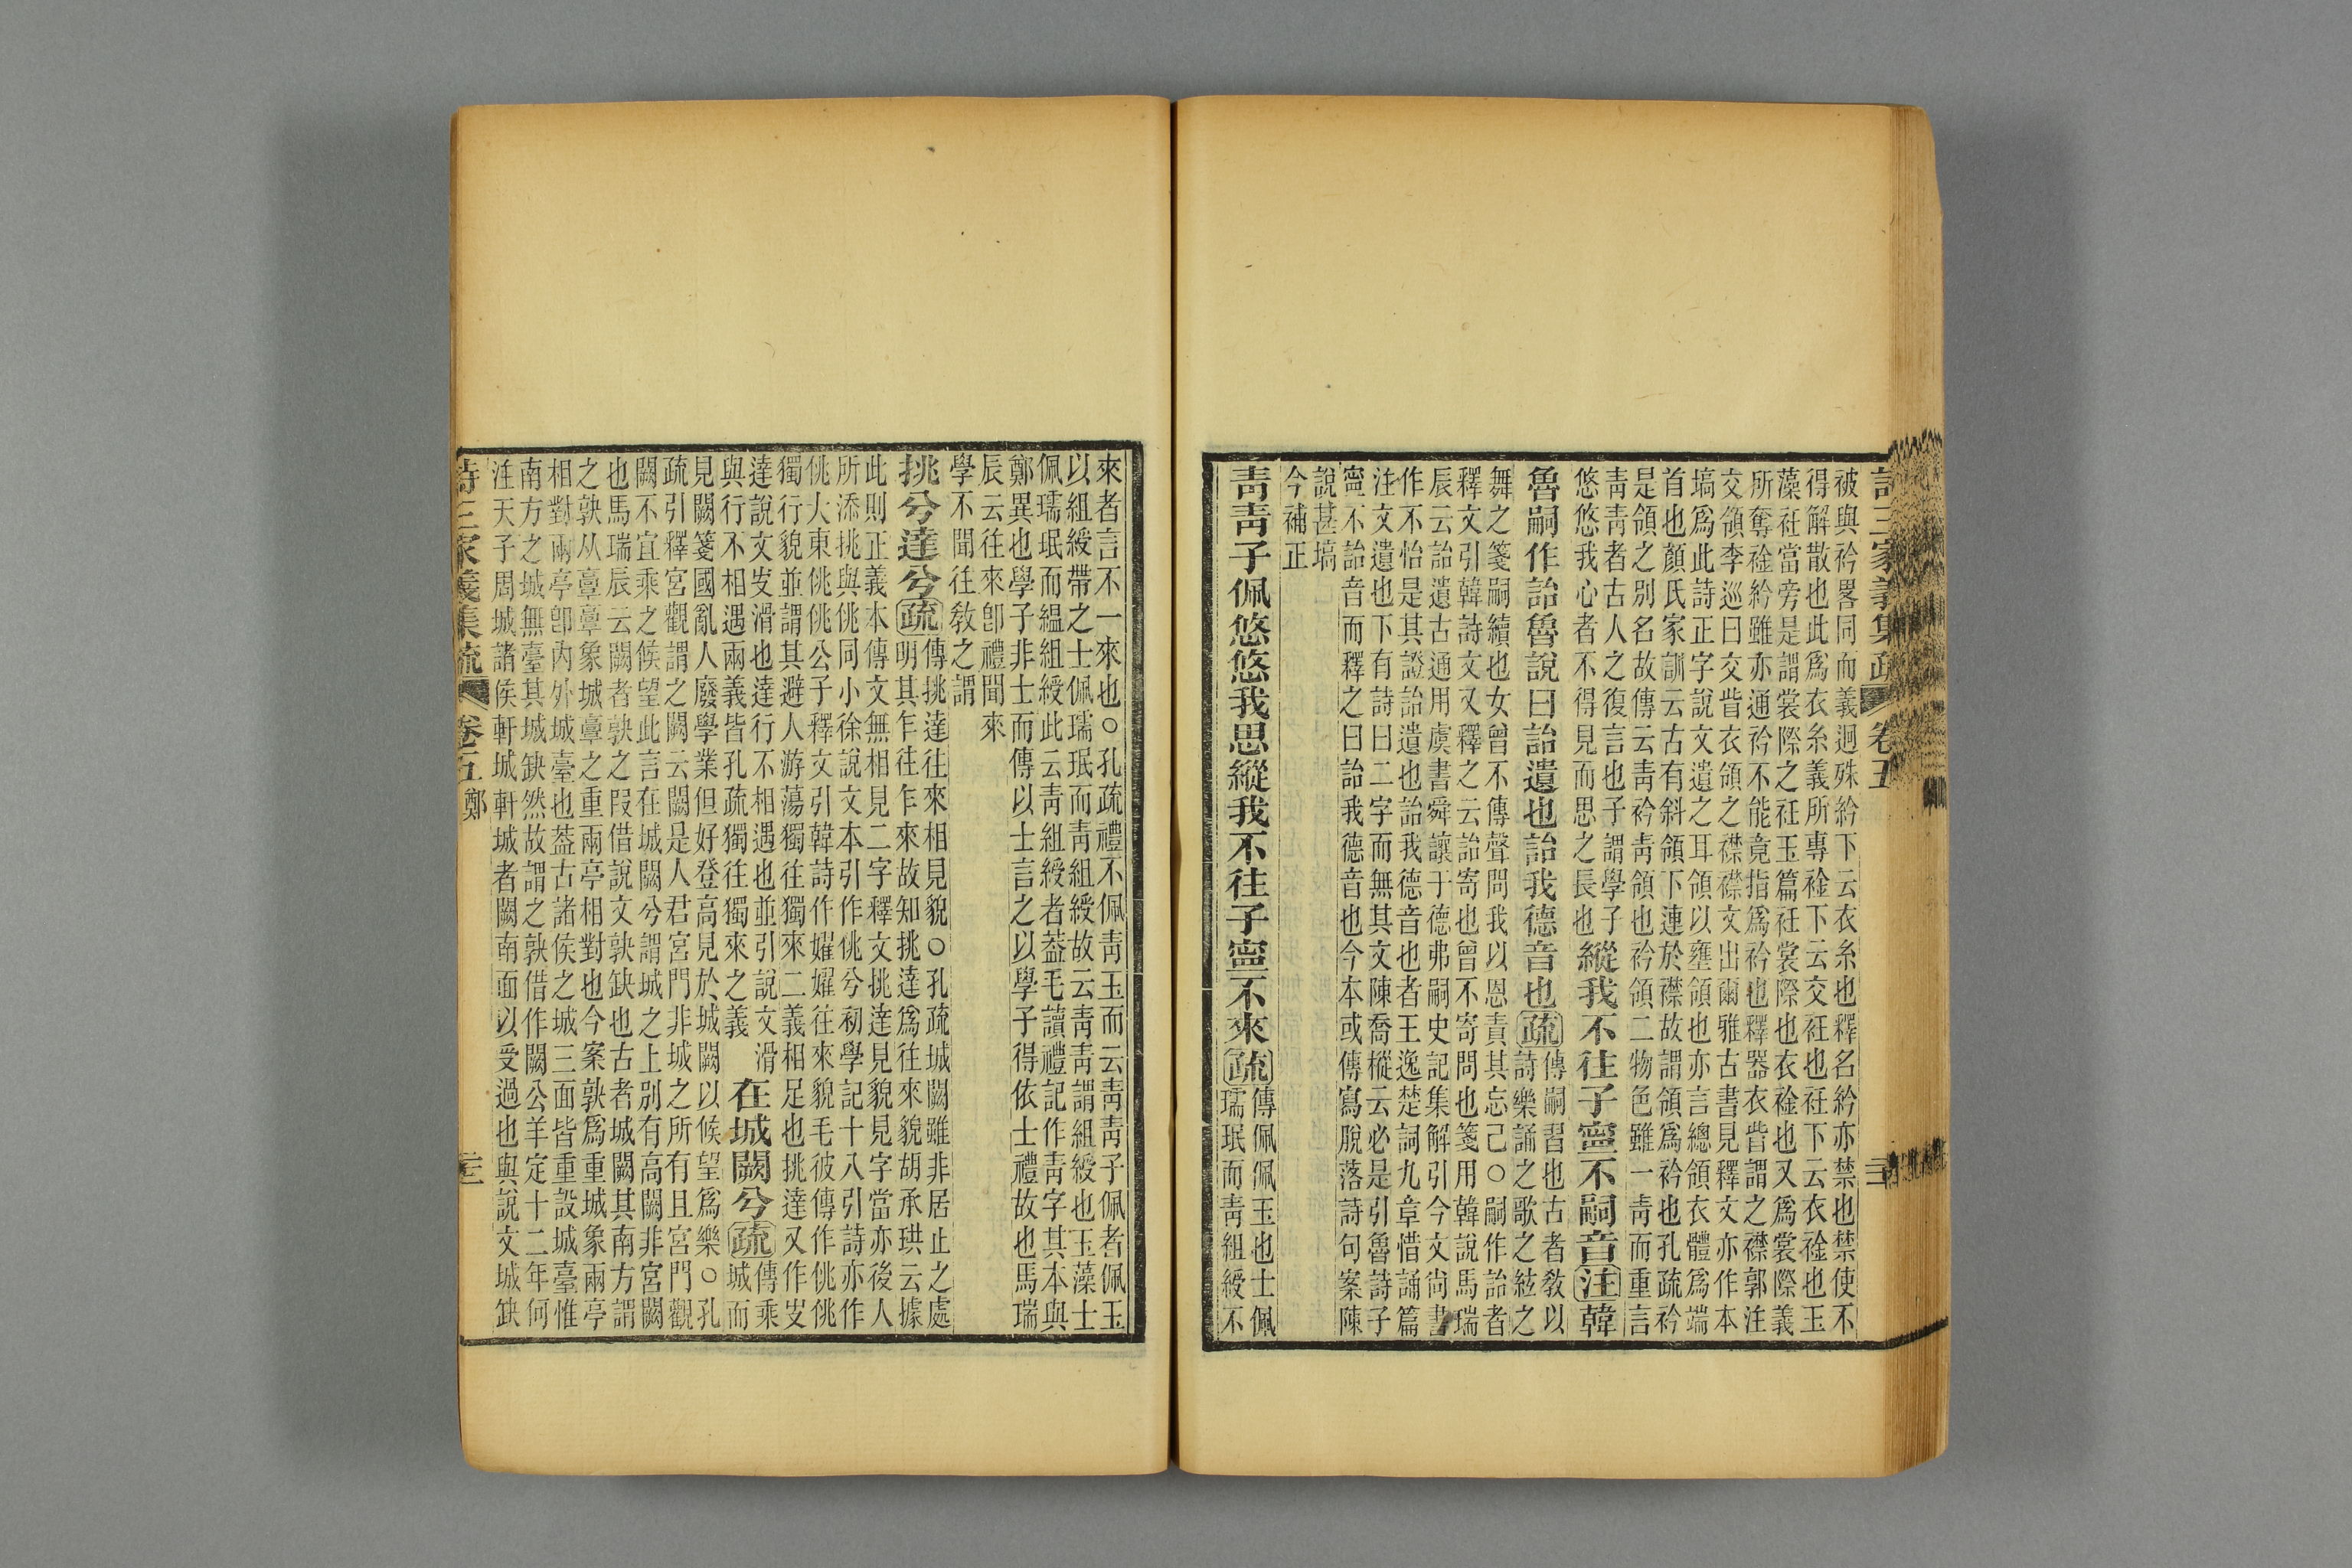 詩三家義集疏 卷五
被與衿畧同而義迥殊紟下云衣糸也釋名紟亦禁也禁使不
得解散也此爲衣糸義所專裣下云交衽也衽下云衣裣也玉
藻衽當旁是謂裳際之衽玉篇衽裳際也衣裣也又爲裳際義
所奪裣紟雖亦通衿不能竟指爲衿也釋器衣眥謂之襟郭注
交領李巡曰交眥衣領之襟襟文出爾雅古書見釋文亦作本
塙爲此詩正字說文遺之耳領以壅領也亦言總領衣體爲端
首也顏氏家訓云古有斜領下連於襟故謂領爲衿也孔疏衿
是領之別名故傳云靑衿靑領也衿領二物色雖一靑而重言
靑靑者古人之復言也子謂學子
悠悠我心者不得見而思之長也
縱我不往子寧不嗣音注韓
魯嗣作詒魯說曰詒遺也詒我德音也疏
傳嗣習也古者敎以
詩樂誦之歌之絃之
舞之箋嗣續也女曾不傳聲問我以恩責其忘己○嗣作詒者
釋文引韓詩文又釋之云詒寄也曾不寄問也箋用韓說馬瑞
辰云詒遺古通用虞書舜讓于德弗嗣史記集解引今文尙書
作不怡是其證詒遺也詒我德音也者王逸楚詞九章惜誦篇
注文遺也下有詩曰二字而無其文陳喬樅云必是引魯詩子
寧不詒音而釋之曰詒我德音也今本或傳寫脫落詩句案陳
說甚塙
今補正
靑靑子佩悠悠我思縱我不往子寧不來疏
傳佩佩玉也士佩
瓀珉而靑組綬不
來者言不一來也○孔疏禮不佩靑玉而云靑靑子佩者佩玉
以組綬帶之士佩瓀珉而靑組綬故云靑靑謂組綬也玉藻士
佩瓀珉而縕組綬此云靑組綬者葢毛讀禮記作靑字其本與
鄭異也學子非士而傳以士言之以學子得依士禮故也馬瑞
辰云往來卽禮聞來
學不聞往敎之謂
挑兮達兮疏
傳挑達往來相見貌○孔疏城闕雖非居止之處
明其乍往乍來故知挑達爲往來貌胡承珙云據
此則正義本傳文無相見二字釋文挑達見貌見字當亦後人
所添挑與佻同小徐說文本引作佻兮初學記十八引詩亦作
佻大東佻佻公子釋文引韓詩作嬥嬥往來貌毛彼傳作佻佻
獨行貌並謂其避人游蕩獨往獨來二義相足也挑達又作㞶
達說文㞶滑也達行不相遇也並引說文滑
與行不相遇兩義皆孔疏獨往獨來之義
在城闕兮疏
傳乘
城而
見闕箋國亂人廢學業但好登高見於城闕以候望爲樂○孔
疏引釋宮觀謂之闕云闕是人君宮門非城之所有且宮門觀
闕不宜乘之候望此言在城闕兮謂城之上別有高闕非宮闕
也馬瑞辰云闕者𡙇之叚借說文𡙇缺也古者城闕其南方謂
之𡙇从𩫖𩫖象城𩫖之重兩亭相對也今案𡙇爲重城象兩亭
相對兩亭卽內外城臺也葢古諸侯之城三面皆重設城臺惟
南方之城無臺其城缺然故謂之𡙇借作闕公羊定十二年何
注天子周城諸侯軒城軒城者闕南面以受過也與說文城缺
詩三家義集疏 卷五 鄭